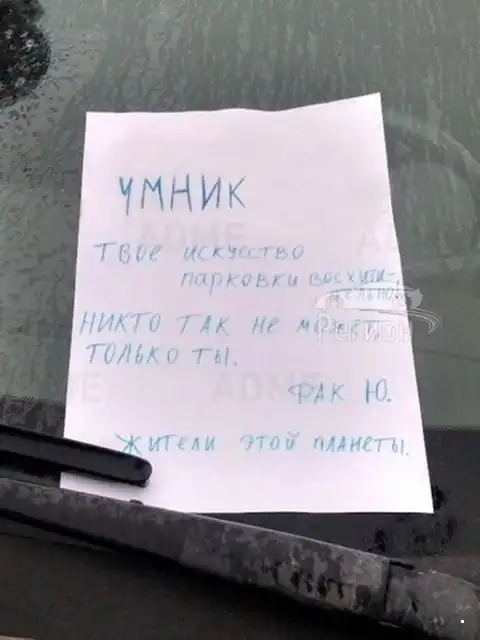 УМНИК
ТВОЕ ИСКУССТВО
ПАРКОВКИ ВОСХИТИ-
ТЕЛЬНО.
НИКТО ТАК НЕ МОЖЕТ,
ТОЛЬКО ТЫ.
ФАК Ю.
ЖИТЕЛИ ЭТОЙ ПЛАНЕТЫ.
ADME
ADME
РЕГИОН